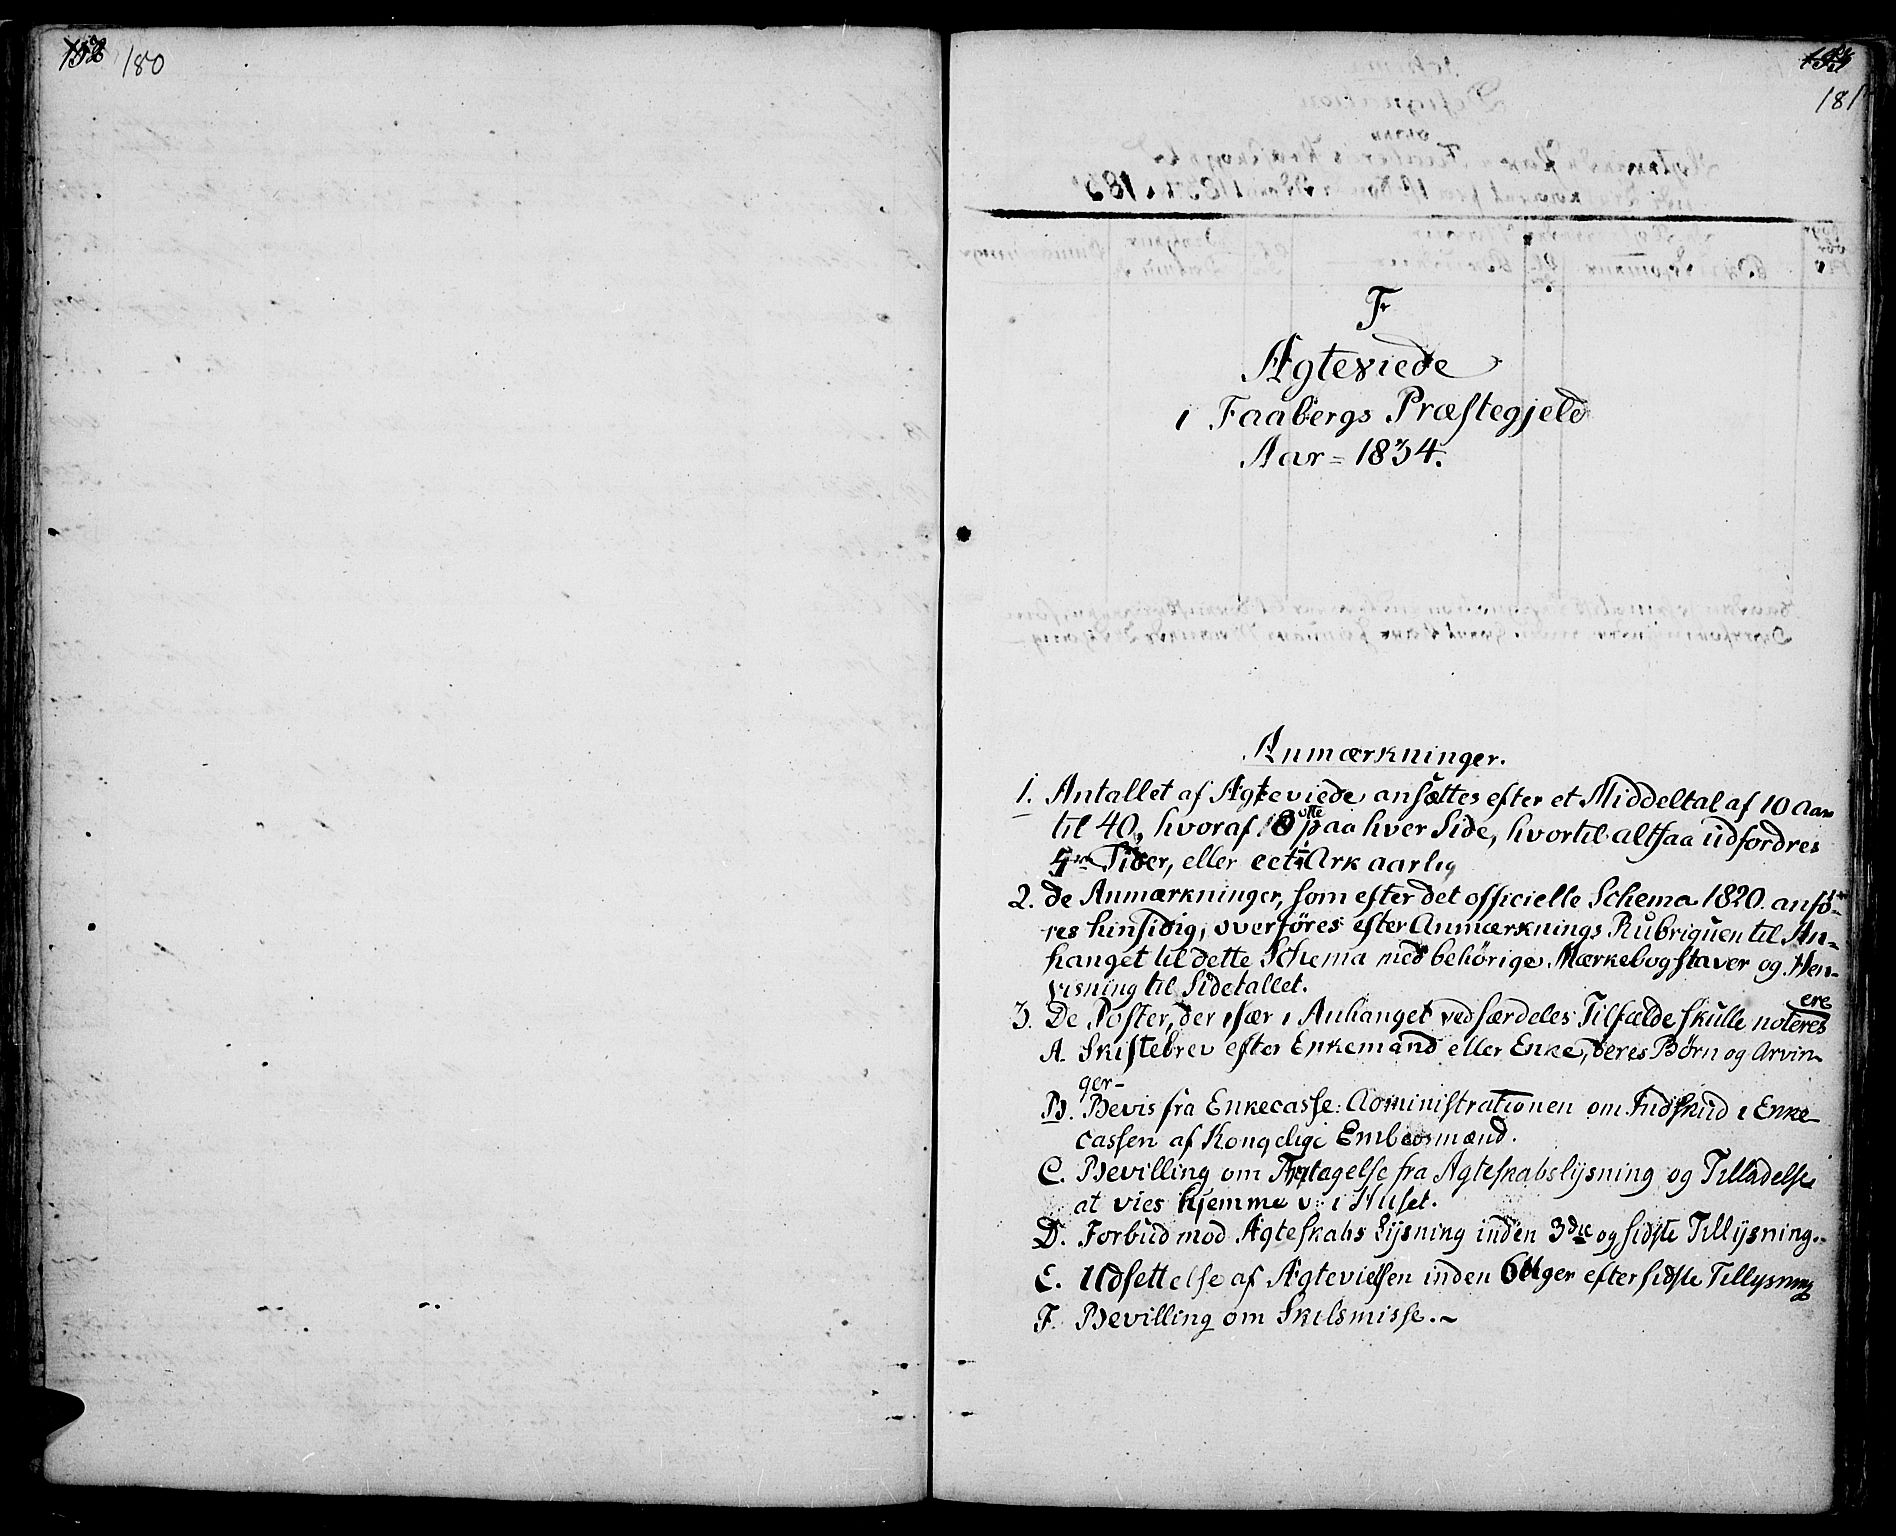 180
181
F
Ægteviede
i Faabergs Præstegjeld
Aar = 1834.
Anmærkninger.
1. Antallet af Ægteviede ansættes efter et Middeltal af 10 Aar
til 40, hvoraf paa hver Side, hvortil altsaa udfordres
Sider, eller eet Ark aarlig
2. de Anmærkninger, som efter det officielle Schema 1820. anfö-
res hinsidig, overföres efter Anmærknings Rubriquen til An-
hanget til dette Schema med behörige Mærkebogstaver og Hen-
visning til Sidetallet.
3. De Poster, der især i Anhanget ved særdeles Tilfælde skulle noteres ere
A. Skiftebrev efter Enkemand eller Enke, deres Børn og Arvin-
ger-
B. Bevis fra Enkecasse: Administrationen om Indskud i Enke
cassen af Kongelige Embedsmænd.
C. Bevilling om Fritagelse fra Ægteskabslysning og Tilladelse
at vies hjemme i Huset.
D. Forbud mod Ægteskabs Lysning inden 3die og sidste Tillysning.-
E. Udsettelse af Ægtevielsen inden 6 Uger efter sidste Tillysning
F. Bevilling om Skilsmisse.-